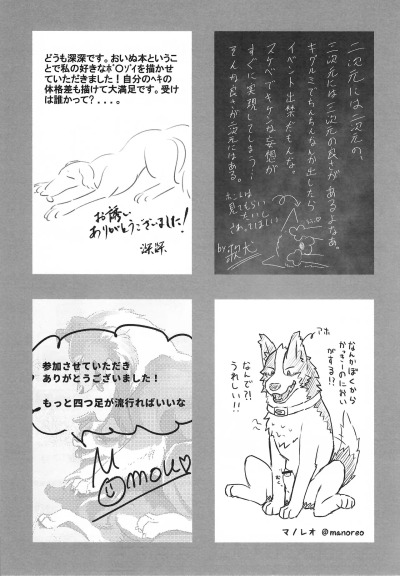 どうも深深です。おいぬ本ということ
とで私の好きなボ〇ゾイを描かせ
ていただきました!自分のヘキの
体格差も描けて大満足です。受け
は誰かって?...。
お誘い
ありがとうございました!
深深
二次元には二次元の、
三次元には三次元の良さがあるよなぁ。
キグルミでちんちんなんか出したら
イベント出禁だもんな。
スケベでキケンな妄想が
すぐに実現してしまう!
そんな良さが二次元にはある。
ホントは
見てもらい
たいし
さわってほしい
by
参加させていただき
ありがとうございました!
もっと四つ足が流行ればいいな
Momou
アホ
なんかぼくから
かっきーのにおい
がする!?
なんで?!
うれしい!!
マノレオ @manoreo